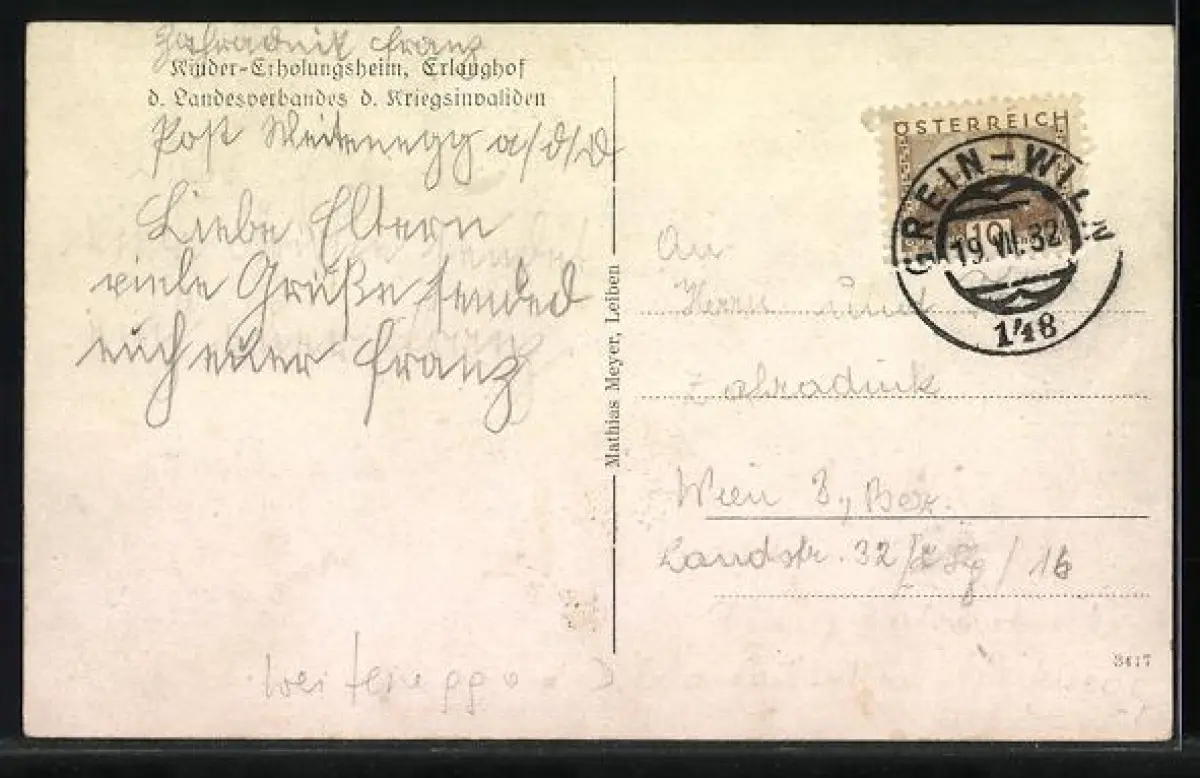 Zahradnik Franz
Kinder-Erholungsheim, Erlanghof
d. Landesverbandes d. Kriegsinvaliden
Post Weitenegg a/d/D
Liebe Eltern
viele Grüße sended
euch euer Franz
Weitenegg a. D
Mathias Meyer, Leiben
ÖSTERREICH
10
GREIN-WIEN
19.VII.32
148
An
Herrn und
Zahradnik
Wien 3., Bez.
Landstr. 32 / 16
3417